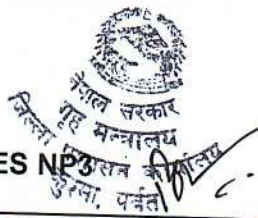 नेपाल सरकार
गृह मन्त्रालय
जिल्ला प्रशासन कार्यालय
कुश्मा, पर्वत
ES NP3